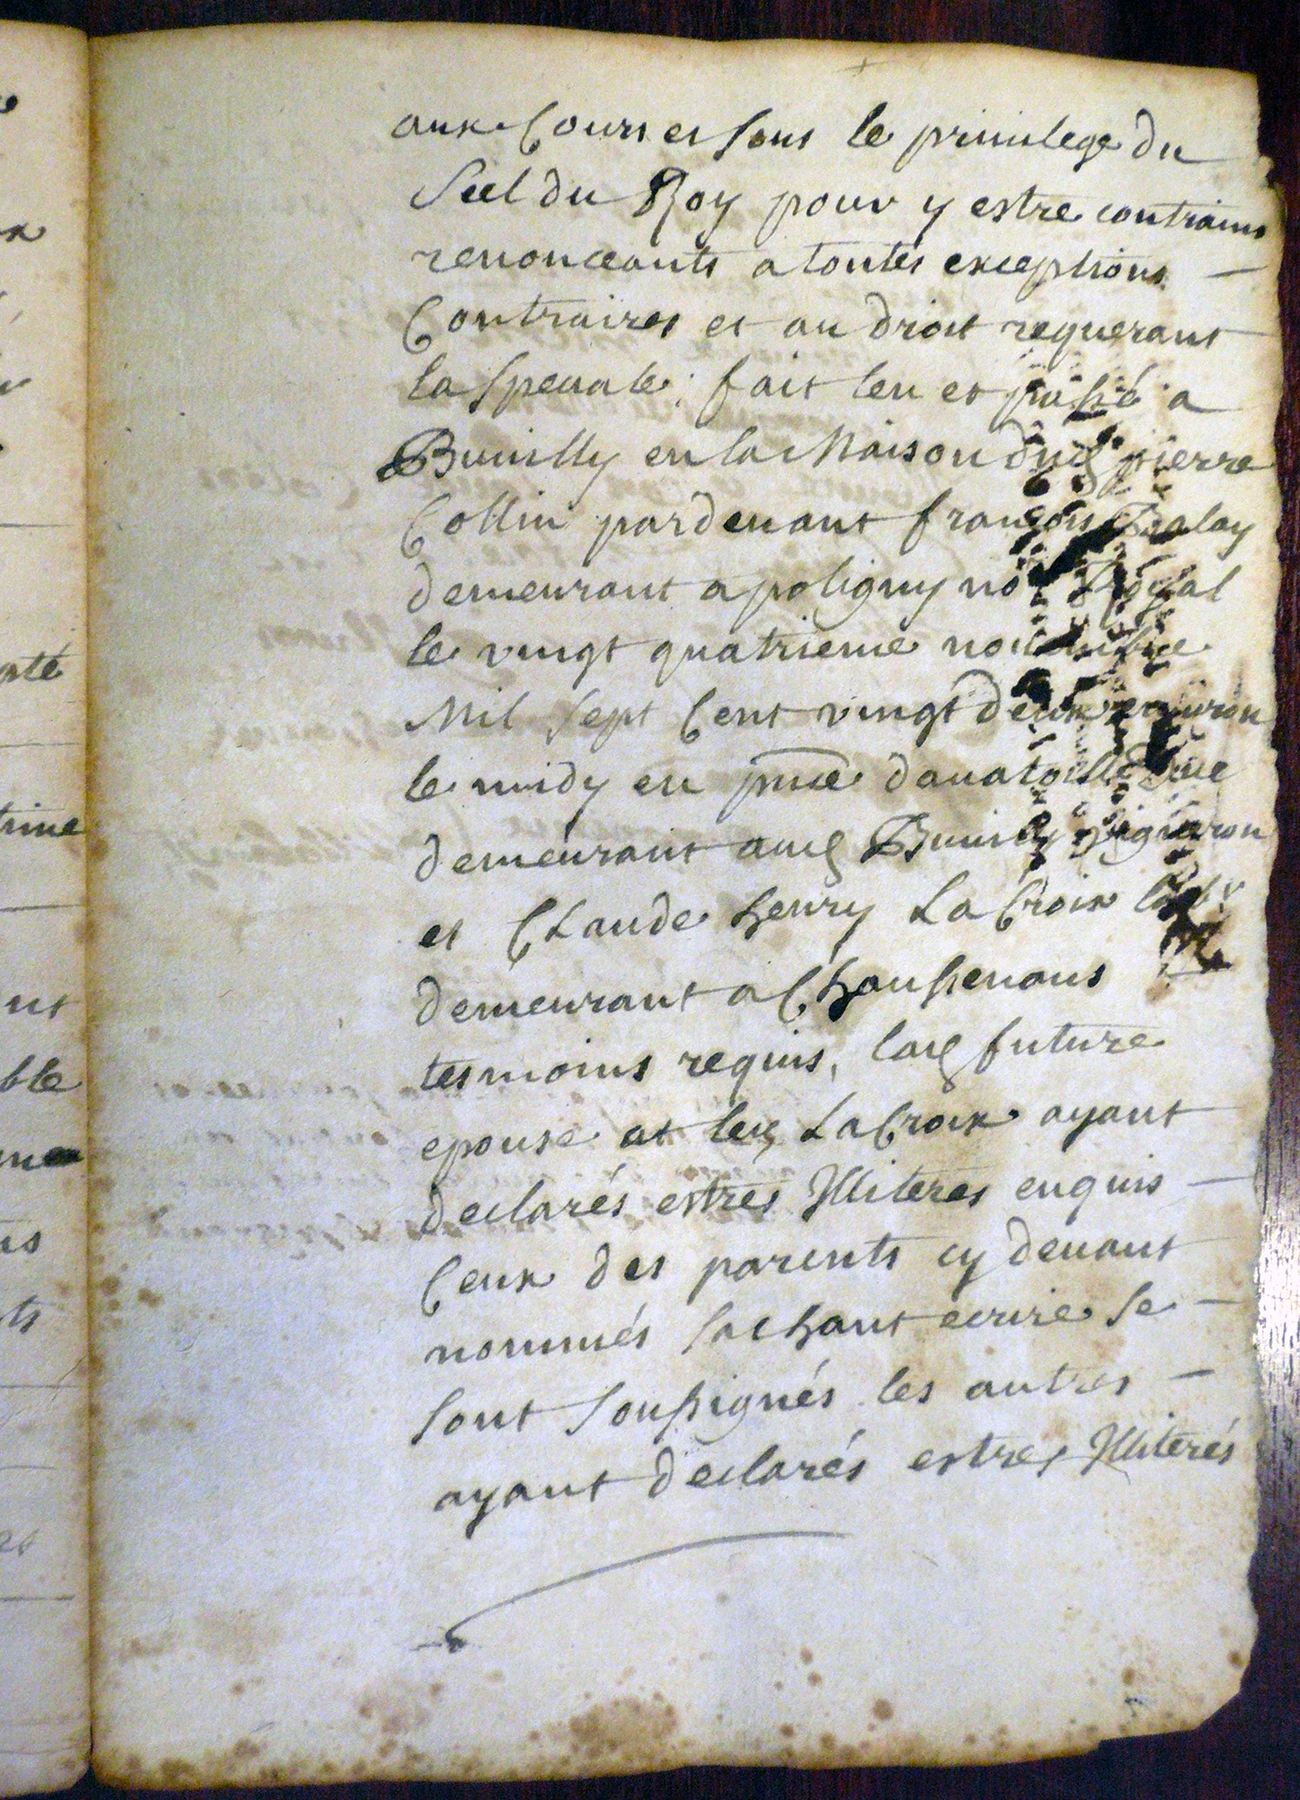 aux Cours et sous le privilege du
Seel du Roy pour y estre contrains
renonceants a toutes exceptions
Contraires et au droit requerant
la speciale ; fait leu et passé a
Buvilly en la Maison dud pierre
Collin pardevant françois
demeurant a poligny not Royal
le vingt quatrieme novembre
Mil sept Cent vingt deux environ
le midy en pnce d'anatoille
demeurant aud Buvilly vigneron
et Claude henry LaCroix
demeurant a Chaussenans
tesmoins requis, lad future
epouse et led LaCroix ayant
declarés estres Illiteres enquis
Ceux des parents cy devant
nommés sachant ecrire se
sont soussignés les autres
ayant declarés estres Illiterés
até
ble
ts